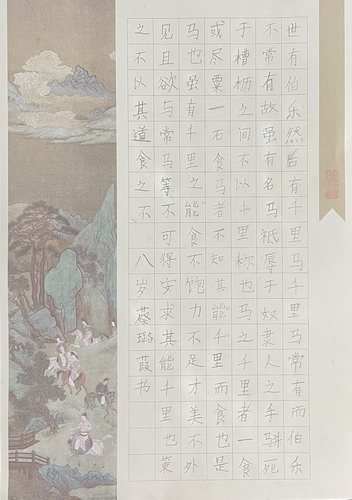 世有伯乐然后有千里马千里马常有而伯乐
不常有故虽有名马祗辱于奴隶人之手骈死
于槽枥之间不以千里称也马之千里者一食
或尽粟一石食马者不知其能千里而食也是
马也虽有千里之能食不饱力不足才美不外
见且欲与常马等不可得安求其能千里也策
之不以其道食之不 八岁蔡璐葭书